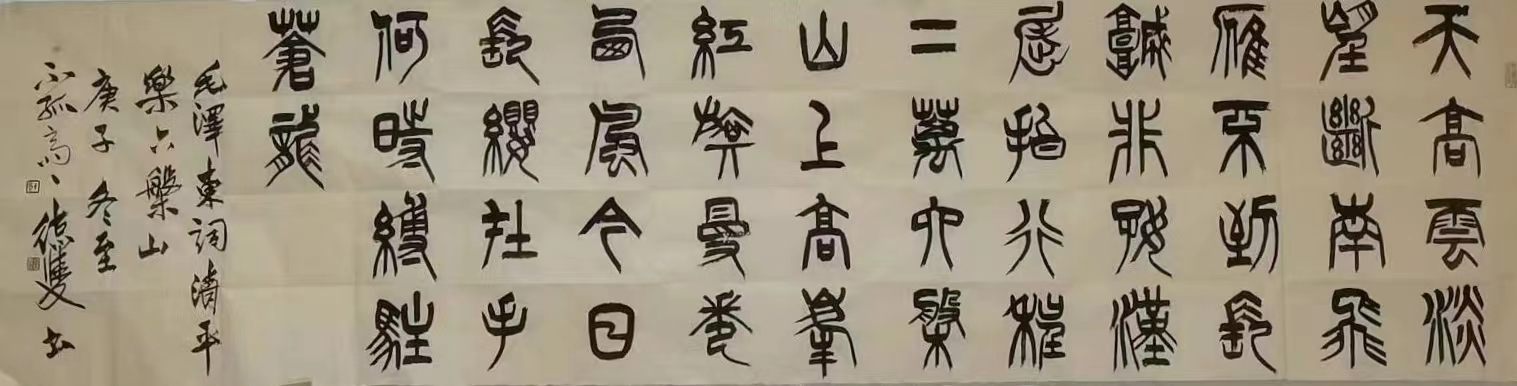 天高雲淡
望斷南飛
雁不到長
城非好漢
屈指行程
二萬六盤
山上高峯
紅旗曼卷
西風今日
長纓在手
何時縛駐
蒼龍
毛澤東詞清平
樂六盤山
庚子冬至
不孤 德雙書